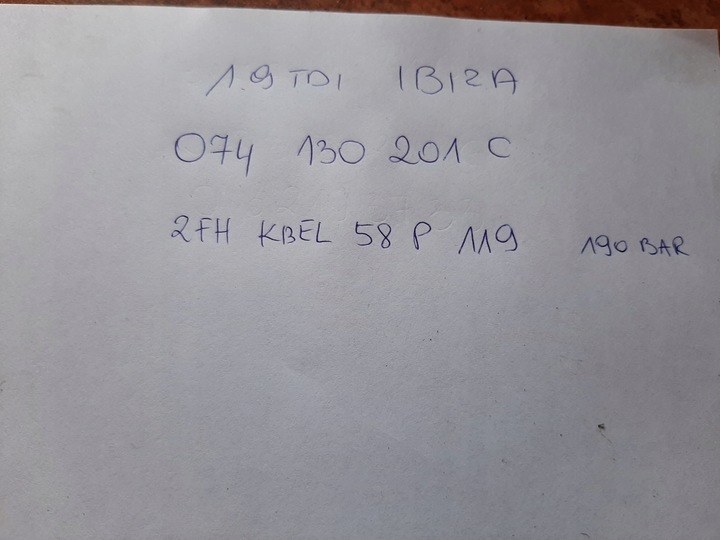 1.9 TDI IBIZA
074 130 201 C
2FH KBEL 58 P 119 190 BAR